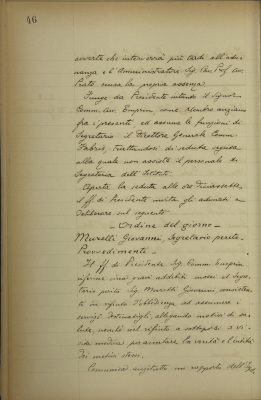 46
avverte che interverrà più tardi all'adu-
nanza e l'Amministratore Sig. Cav. Prof. Avv.
Prato, scusa la propria assenza.
Funge da Presidente intanto il Signor
Comm. Avv. Emprin come membro anziano
fra i presenti ed assume le funzioni di
Segretario il Direttore Generale Comm.
Fabris, trattandosi di seduta segreta
alla quale non assiste il personale di
Segreteria dell'Istituto.
Aperta la seduta alle ore diciassette,
il ff. di Presidente invita gli adunati a
deliberare sul seguente
Ordine del giorno
Muratti Giovanni, Segretario perito.
Provvedimenti.
Il ff. di Presidente Sig. Comm. Emprin
riferisce circa gravi addebiti mossi al Segre-
tario perito Sig. Muratti Giovanni
in rifiuto d'obbedienza ad assumere i
servizi, allegando motivi di sa-
lute, nonché nel rifiuto a sottoporsi a vi-
sita medica per constatare la verità e l'entità
dei motivi stessi.
Comunica anzitutto un rapporto dell'